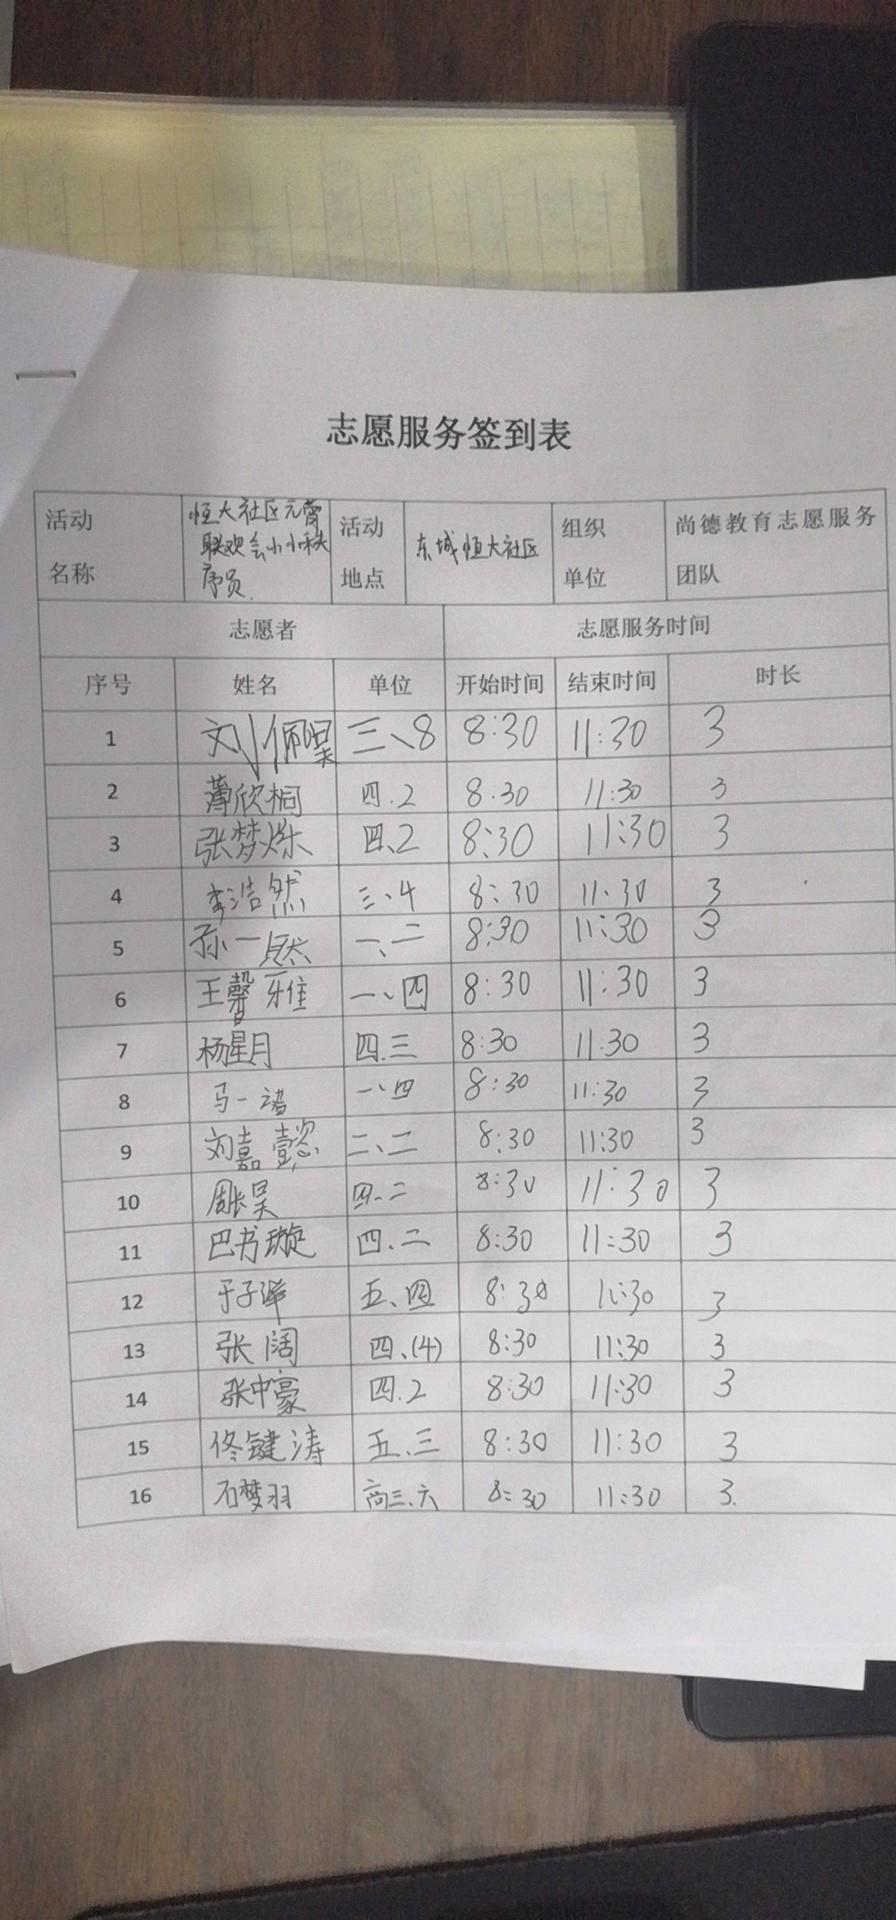 志愿服务签到表
活动名称 恒大社区元宵联欢会小小秩序员. 活动地点 东城恒大社区 组织单位 尚德教育志愿服务团队
志愿者 志愿服务时间
序号 姓名 单位 开始时间 结束时间 时长
1 刘佩昊 三、8 8:30 11:30 3
2 薄欣桐 四.2 8:30 11:30 3
3 张梦烁 四、2 8:30 11:30 3
4 李浩然 三、4 8:30 11:30 3
5 孙一然 一、二 8:30 11:30 3
6 王馨雅 一、四 8:30 11:30 3
7 杨星月 四.三 8:30 11:30 3
8 马一诺 一、四 8:30 11:30 3
9 刘嘉懿 二、二 8:30 11:30 3
10 周长昊 四.二 8:30 11:30 3
11 巴书璇 四.二 8:30 11:30 3
12 于子洋 五、四 8:30 11:30 3
13 张阔 四、(4) 8:30 11:30 3
14 张中豪 四.2 8:30 11:30 3
15 佟键涛 五.三 8:30 11:30 3
16 石梦羽 高三.六 8:30 11:30 3.